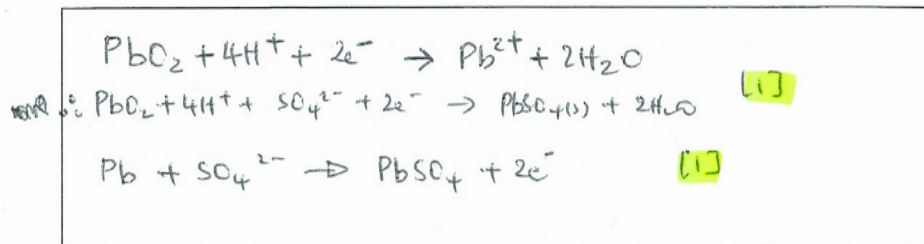 PbO₂ + 4H⁺ + 2e⁻ → Pb²⁺ + 2H₂O
∴ PbO₂ + 4H⁺ + SO₄²⁻ + 2e⁻ → PbSO₄(s) + 2H₂O [1]
Pb + SO₄²⁻ → PbSO₄ + 2e⁻ [1]